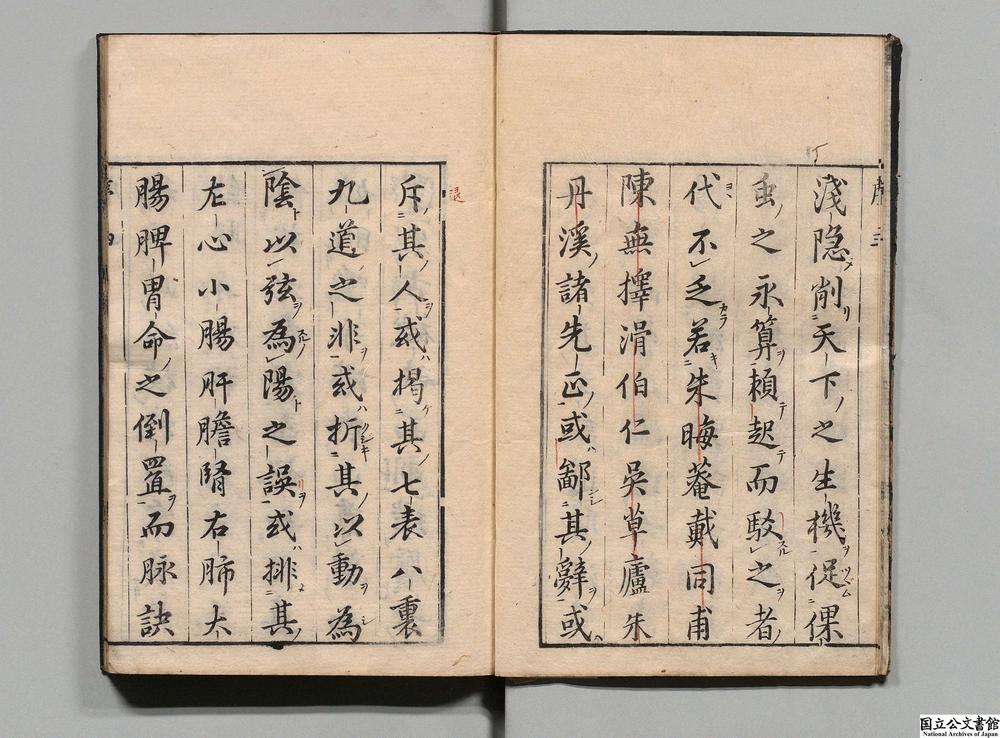 淺隠削天下之生機促倮
䖝之永算頼起而駁之者
代不乏若朱晦菴戴同甫
陳無擇滑伯仁吳草廬朱
丹溪諸先正或鄙其辭或
斥其人或掲其七表八裏
九道之非或折其以動為
陰以弦為陽之誤或排其
左心小腸肝膽腎右肺大
腸脾胃命之倒置而脉訣
国立公文書館
National Archives of Japan